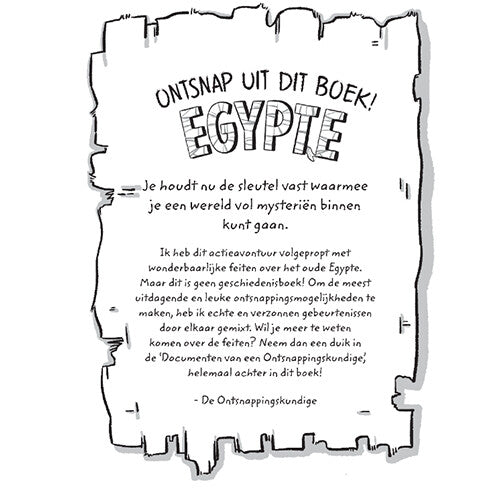 ONTSNAP UIT DIT BOEK!
EGYPTE
Je houdt nu de sleutel vast waarmee
je een wereld vol mysteriën binnen
kunt gaan.
Ik heb dit actieavontuur volgepropt met
wonderbaarlijke feiten over het oude Egypte.
Maar dit is geen geschiedenisboek! Om de meest
uitdagende en leuke ontsnappingsmogelijkheden te
maken, heb ik echte en verzonnen gebeurtenissen
door elkaar gemixt. Wil je meer te weten
komen over de feiten? Neem dan een duik in
de ‘Documenten van een Ontsnappingskundige’,
helemaal achter in dit boek!
- De Ontsnappingskundige